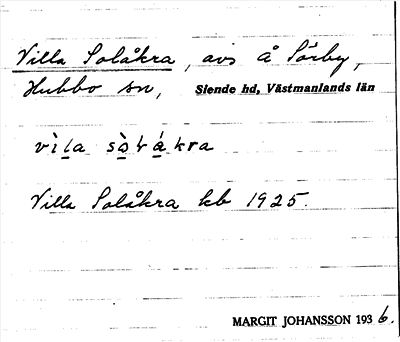 Villa Solåkra, avs å Sörby,
Hubbo sn, Siende hd, Västmanlands län
vìla sòlákra
Villa Solåkra kb 1925.
MARGIT JOHANSSON 1936.